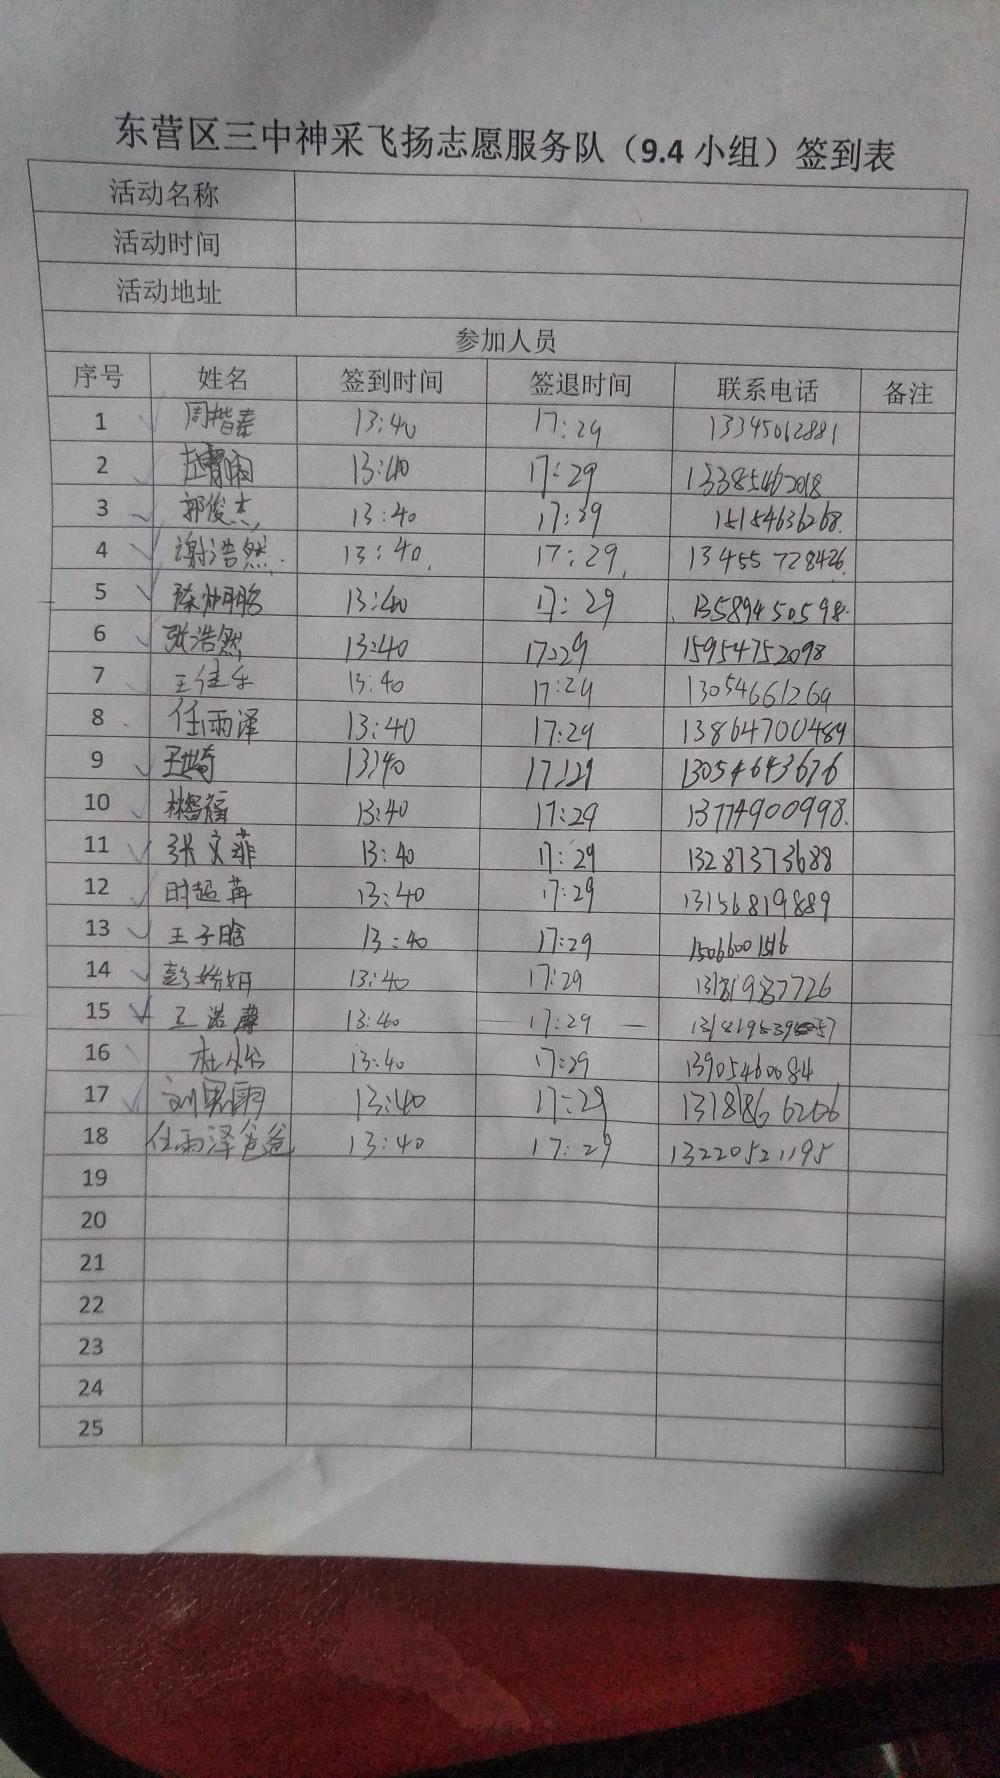 东营区三中神采飞扬志愿服务队（9.4 小组）签到表
活动名称
活动时间
活动地址
参加人员
序号 姓名 签到时间 签退时间 联系电话 备注
1 周楷泰 13:40 17:29 13345012881
2 13:40 17:29 13385462018
3 郭俊杰 13:40 17:29 15154636268.
4 谢浩然. 13:40. 17:29. 13455728426.
5 13:40 17:29 13589450598.
6 张浩然 13:40 17:29 15954752098
7 王佳乐 13:40 17:29 13054661269
8 任雨泽 13:40 17:29 13864700489
9 13:40 17:29 13054643676
10 林智福 13:40 17:29 13774900998.
11 张文菲 13:40 17:29 13287373688
12 时超苒 13:40 17:29 13156819889
13 王子晗 13:40 17:29
14 彭娇妍 13:40 17:29
15 王浩 13:40 17:29
16 13:40 17:29 13905460084
17 13:40 17:29
18 任雨泽爸爸 13:40 17:29 13220521195
19
20
21
22
23
24
25